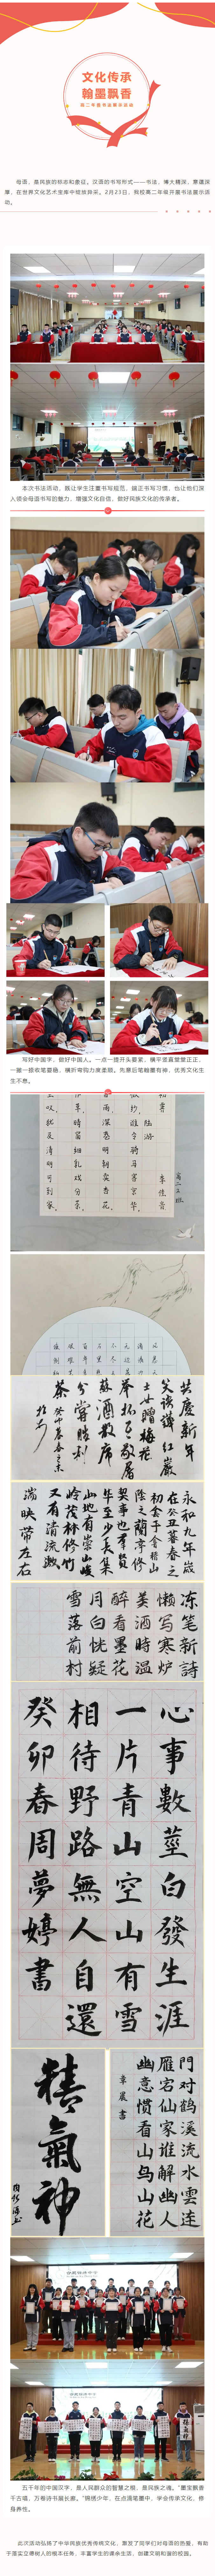 文化传承
翰墨飘香
高二年级书法展示活动
母语，是民族的标志和象征。汉语的书写形式——书法，博大精深，意蕴深
厚，在世界文化艺术宝库中绽放异采。2月23日，我校高二年级开展书法展示活
动。
本次书法活动，既让学生注重书写规范，端正书写习惯，也让他们深
入领会母语书写的魅力，增强文化自信，做好民族文化的传承者。
写好中国字，做好中国人。一点一提开头要紧，横平竖直堂堂正正，
一撇一捺收笔要稳，横折弯钩力度柔韧。先意后笔翰墨有神，优秀文化生
生不息。
初霁
陆游
共庆新年
笑语哗红岩
士女赠梅花
举杯互敬屠
苏酒散席
分尝胜利
茶
永和九年岁
在癸丑暮春之
初会于会稽山
阴之兰亭修
禊事也群贤
毕至少长咸集
此地有崇山峻
岭茂林修竹
又有清流激
湍映带左右
冻笔新詩
懒写寒炉
美酒時温
醉看墨花
月白恍疑
雪落前村
心事數莖白發生涯
一片青山空山有雪
相待野路無人自還
癸卯春周夢婷書
精氣神
門对鹤溪流水雲连
雁宕仙家谁解幽人
幽意惯看山鸟山花
章晨書
五千年的中国汉字，是人民群众的智慧之根，是民族之魂。“墨宝飘香
千古唱，万卷诗书展长廊。”锦绣少年，在点滴笔墨中，学会传承文化，修
身养性。
此次活动弘扬了中华民族优秀传统文化，激发了同学们对母语的热爱，有助
于落实立德树人的根本任务，丰富学生的课余生活，创建文明和谐的校园。